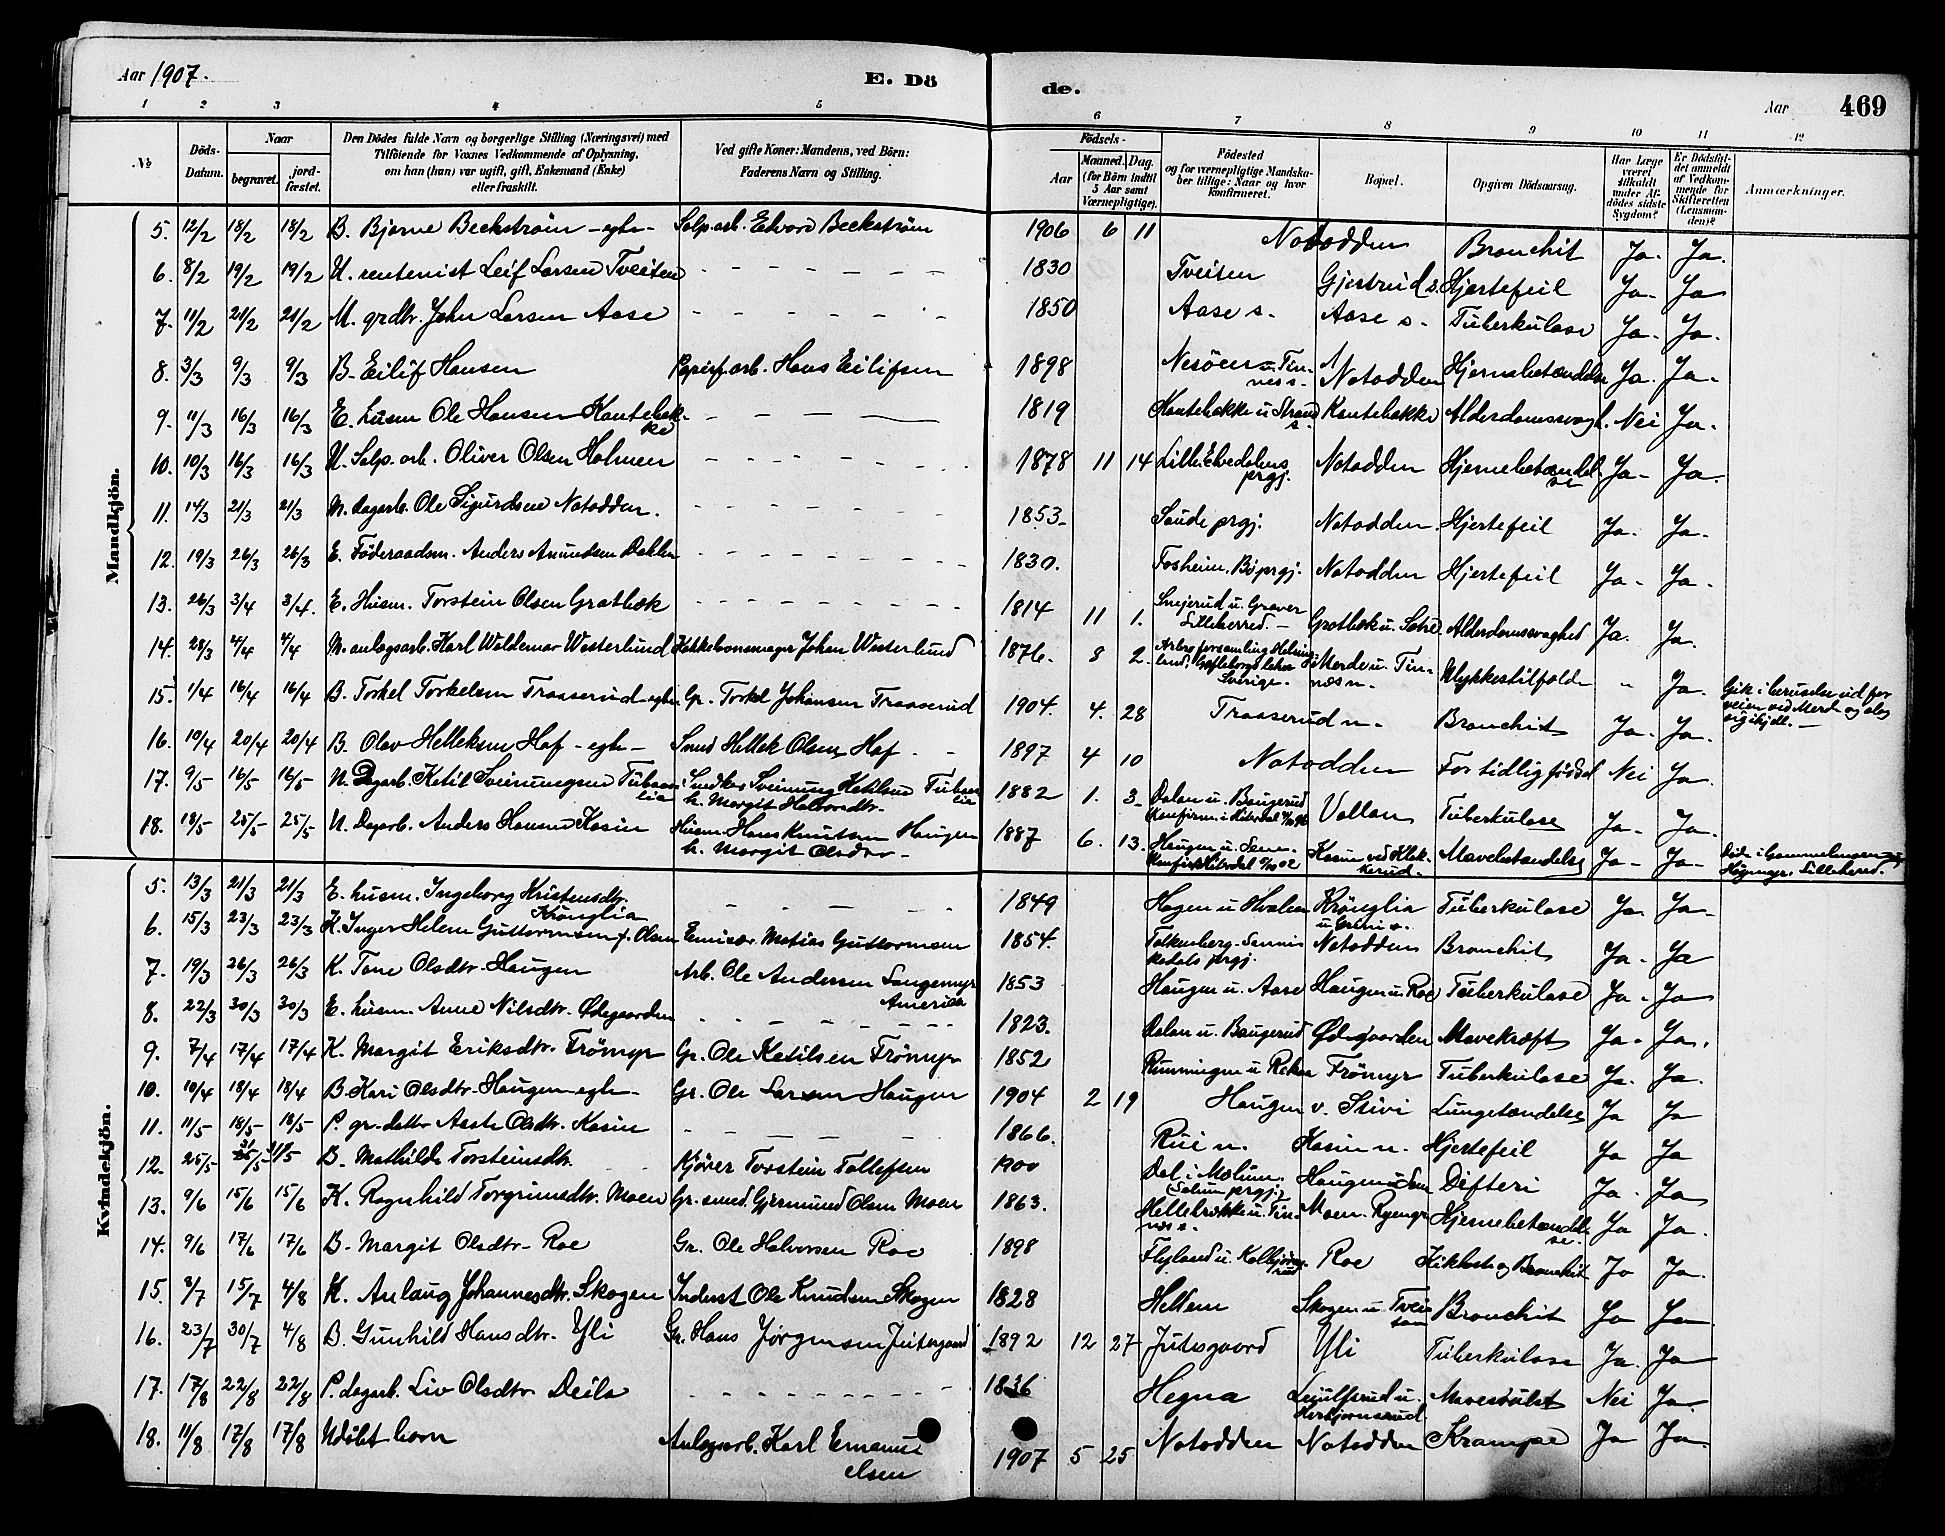 Aar 1907.
E. Dö
de.
Aar
469
1 2 3 4 5
6 7 8 9 10 11 12
№
Döds-Datum.
Naar
begravet.
jord-fæstet.
Den Dödes fulde Navn og borgerlige Stilling (Næringsvei) med
Tilföiende for Voxnes Vedkommende af Oplysning,
om han (hun) var ugift, gift, Enkemand (Enke)
eller fraskilt.
Ved gifte Koner: Mandens, ved Börn:
Faderens Navn og Stilling.
Födsels-
Aar
Maaned.
Dag.
(for Börn indtil
5 Aar samt
Værnepligtige).
Födested
og for værnepligtige Mandska-
ber tillige: Naar og hvor
konfirmeret.
Bopæl.
Opgiven Dödsaarsag.
Har Læge
været
tilkaldt
under Af-
dödes sidste
Sygdom?
Er Dödsfal-
det anmeldt
af Vedkom-
mende for
Skifteretten
(Lensman-
den)?
Anmærkninger.
Mandkjön.
5. 12/2 18/2 18/2 B. Bjarne Beckstrøm - egte - Salp.arb. Edvard Beckstrøm 1906 6 11 Notodden Bronchit Ja. Ja.
6. 8/2 19/2 19/2 U. rentenist Leif Larsen Tveiten 1830 Tveiten Gjestrud s. Hjertefeil Ja - Ja
7. 11/2 21/2 21/2 M. grdbr. John Larsen Aase 1850 Aase s. Aase s. Tuberkulose Ja. Ja.
8. 3/3 9/3 9/3 B. Eilif Hansen Papirf.arb. Hans Eilifsen 1898 Nesøen u. Tin-
nes s. Notodden Hjernebetændelse Ja. Ja.
9. 11/3 16/3 16/3 E. husm. Ole Hansen Kantebak-
ke 1819 Kantebakke u. Strand
s. Kantebakke Alderdomssvagh. Nei Ja.
10. 10/3 16/3 16/3 U. Salp. arb. Oliver Olsen Holmen 1878 11 14 Lille Elvedalens
prgj. Notodden Hjernebetændel
se Ja - Ja.
11. 14/3 21/3 21/3 M. Dagarb. Ole Sigurdsen Notodden. 1853 Saude prgj. Notodden. Hjertefeil Ja. Ja.
12. 19/3 26/3 26/3 E. Föderaadsm. Anders Amundsen Dahlen 1830. Fosheim, Bö prgj. Notodden Hjertefeil Ja - Ja.
13. 26/3 3/4 3/4. E. Husm. Torstein Olsen Grotbæk 1814 11 1. Snejerud u. Graver
Lilleherred. Grotbæk u. Sætre Alderdomssvaghed Ja. Ja.
14. 28/3 4/4 4/4 M. anlægsarb. Karl Waldemar Westerlund Kakkelovnsmager Johan Westerlund 1876. 8 2. Arbro forsamling Helsing-
land, Gefleborgs lehen
Sverige. Merde u. Tin-
næs n. Ulykkestilfælde " Ja. Gik i beruselse ud for
veien ved Merde og slog
sig ihjel. -
15. 1/4 16/4 16/4 B. Torkel Torkelsen Traaserud - egte - Gr. Torkel Johansen Traaserud 1904. 4. 28 Traaserud n. Bronchit Ja - Ja.
16. 10/4 20/4 20/4 B. Olav Helleksen Haf - egte - Smed Hellek Olsen Haf 1897 4 10 Notodden For tidlig födsel Nei Ja.
17. 9/5 16/5 16/5 U. Dagarb. Ketil Sveinungsen Tubaas
lia Smedker Sveinung Ketilsen Tubaas
lia
h. Margit Halvorsdtr. 1882 1. 3. Dalan u. Baugerud
Konfirm. i Hitterdal Vallan Tuberkulose Ja - Ja.
18. 18/5 25/5 25/5 U. Dagarb. Anders Hansen Kasin Husm. Hans Knutsen Haugen
h. Margit Olsdtr - 1887 6. 13. Haugen u. Sem.
Konf. i Hitterdal Kasin ved Klek-
kerud. Mavebetændelse Ja - Ja - Höymyr. Lilleherred.
Kvindekjön.
5. 13/3 21/3 21/3 E. husm. Ingeborg Kristensdtr.
Krönglia 1849 Hagen u. Hvalen Krönglia
u. Grini s. Tuberkulose Ja Ja
6. 15/3 23/3 23/3 K. Inger Helene Guttormsen f. Olsen Emissær Matias Guttormsen 1854. Falkenberg - Sannis
kedals prgj. Notodden Bronchit Ja - Ja
7. 19/3 26/3 26/3 K. Tone Olsdtr. Haugen Arb. Ole Andersen Langemyr
Amerika 1853 Haugen u. Aase Haugen u. Roe Tuberkulose Ja - Ja
8. 22/3 30/3 30/3 E. husm. Anne Nilsdtr. Ødegaarden 1823. Dalan u. Baugerud Ødegaarden Mavekræft Ja - Ja.
9. 7/4 17/4 17/4 K. Margit Eriksdtr. Frömyr Gr. Ole Ketilsen Frömyr 1852 Rumningen u. Frömyr Tuberkulose Ja. Ja.
10. 10/4 18/4 18/4 B. Kari Olsdtr. Haugen egte - Gr. Ole Larsen Haugen 1904 2 19 Haugen v. Stivi Lungetændelse Ja Ja
11. 11/5 18/5 18/5 P. gr. datter Aaste Olsdtr. Kasin 1866. Rui n. Kasin n. Hjertefeil Ja Ja
12. 25/5 31/5 31/5 B. Mathilde Torsteinsdtr. Kjörer Torstein Tollefsen 1900 Dal i Mælum.
(Solum prgj.) Haugen u. Sem Difteri Ja. Ja
13. 9/6 15/6 15/6 K. Ragnhild Torgrimsdtr. Moen Gr. smed Gjermund Olsen Moen 1863. Hellebrække u. Tin-
næs s. Moen. Ryengr Hjernebetændel
se. Ja Ja.
14. 9/6 17/6 17/6 B. Margit Olsdtr. Roe Gr. Ole Halvorsen Roe 1898 Flyland u. Kolbjörns
rud Roe Kikhoste og Bronchit Ja Ja.
15. 8/7 15/7 4/8 K. Anlaug Johannesdtr. Skogen Inderst Ole Knudsen Skogen 1828 Heltem Skogen u. Tvei
tan Bronchit Ja Ja
16. 23/7 30/7 4/8 B. Gunhild Hansdtr. Yli Gr. Hans Jörgensen Jutesgaard 1892 12 27 Jutesgaard Yli Tuberkulose Ja. Ja
17. 17/8 22/8 22/8 P. dagarb. Liv Olsdtr. Deila 1836 Hegna Leiulfsrud u.
Herbjörnsrud. Mavesvulst Nei Ja.
18. 11/8 17/8 17/8 Udöbt barn Anlægsarb. Karl Emanuel
elsen 1907 5 25 Notodden Notodden Krampe Ja Ja.